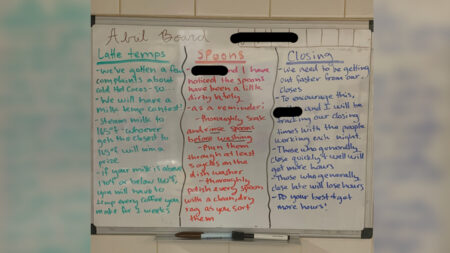 Abul Board
Latte temps
- we've gotten a few
complaints about
cold Hot Cocos - so
- We will have a
milk temp contest!
- Steam milk to
165° - whoever
gets the closest to
165° will win a
prize
- if your milk is above
170° or below 160°,
you will have to
temp every coffee you
make for 2 weeks
SPOONS
and I have
noticed the spoons
have been a little
dirty lately
- as a reminder:
- Thoroughly soak
and rinse spoons
before washing
- Run them
through at least
cycles on the
dish washer
- thoroughly
polish every spoon
with a clean, dry
rag as you sort
them
Closing
- We need to be getting
out faster from our
closes
- To encourage this,
and I will be
tracking our closing
times with the people
working each night.
- Those who generally
close quickly + well will
get more hours
- Those who generally
close late will lose hours
- DO your best + get
more hours!